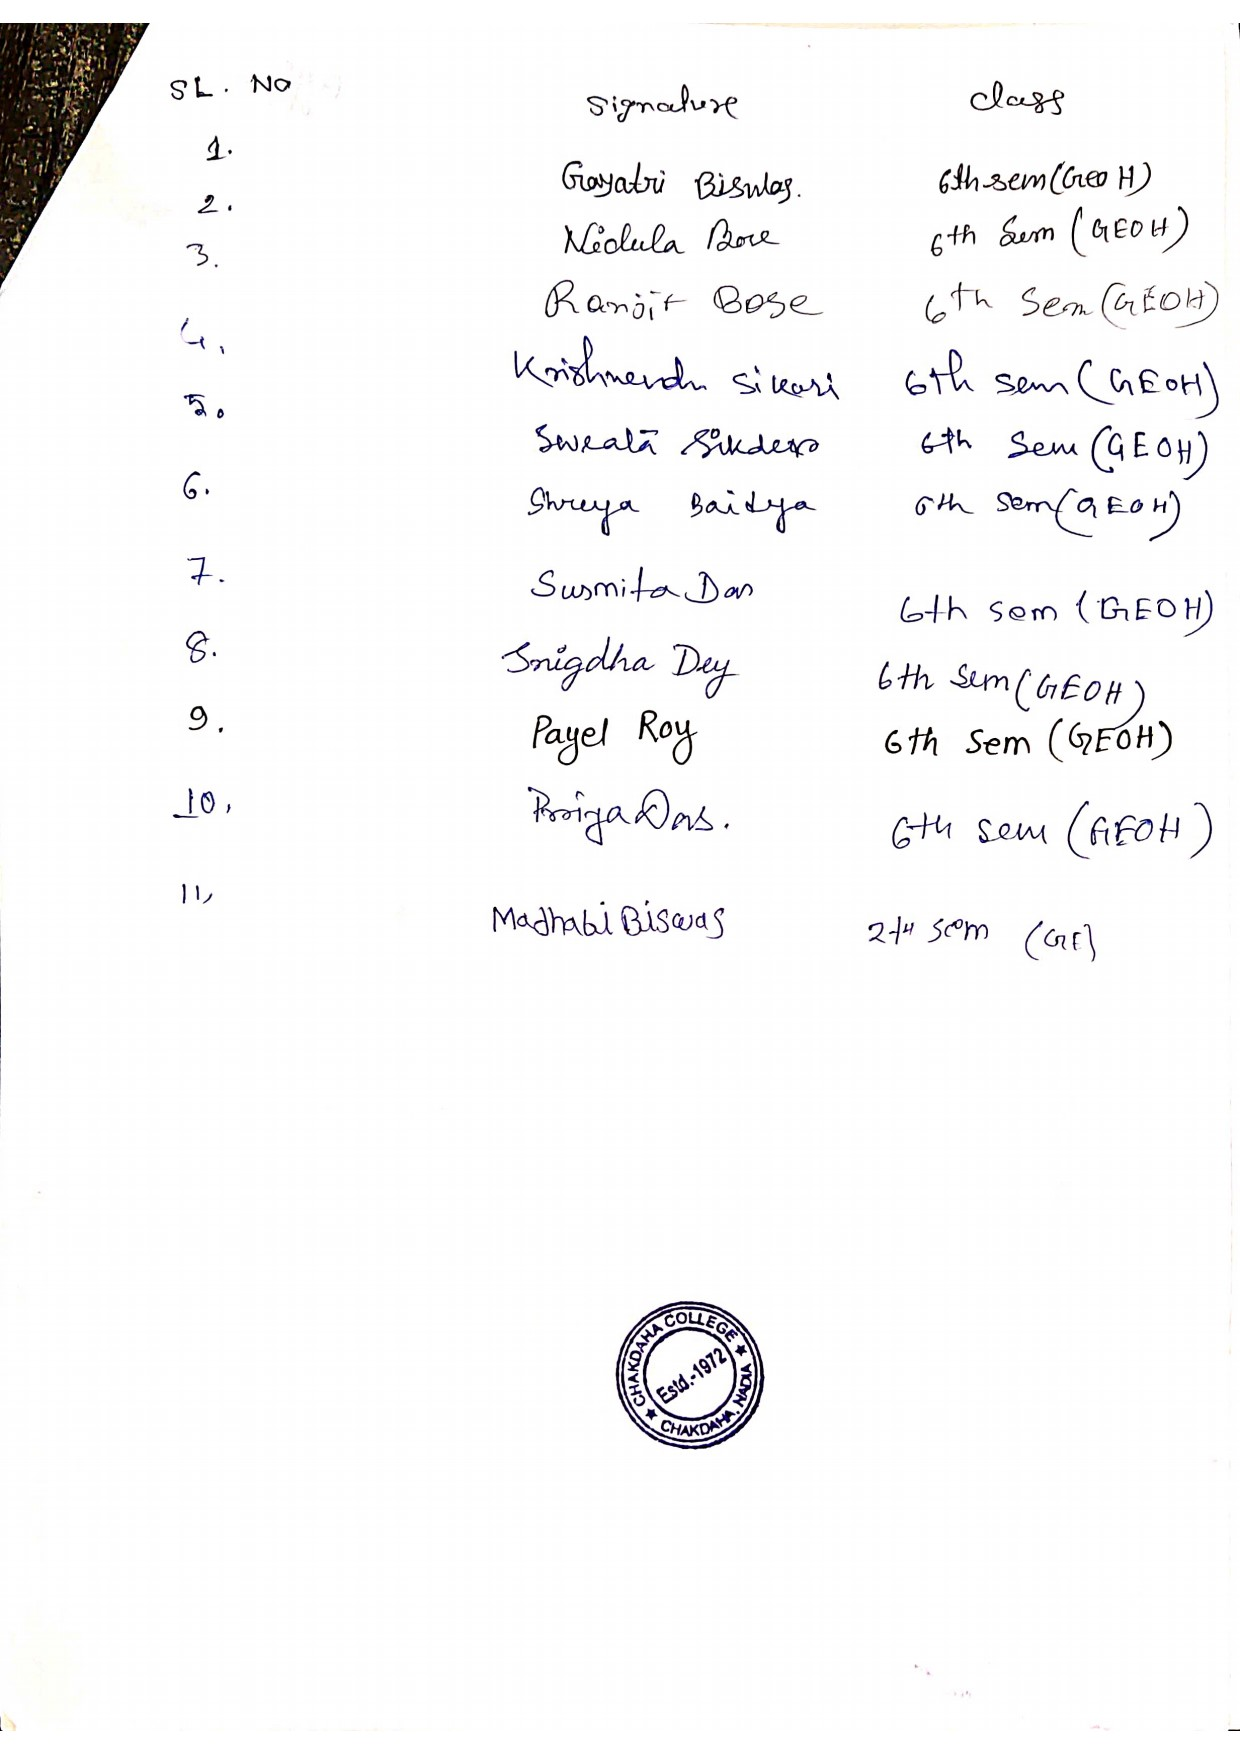 SL. No Signature Class
1. Gayatri Biswas. 6th sem (Geo H)
2. Nidula Bose 6th Sem (GEOH)
3. Ranjit Bose 6th Sem (GEOH)
4. Krishnendu Sikari 6th sem (GEOH)
5. Sikder 6th Sem (GEOH)
6. Shreya Baidya 6th sem (GEOH)
7. Susmita Das 6th sem (GEOH)
8. Snigdha Dey 6th Sem (GEOH)
9. Payel Roy 6th Sem (GEOH)
10. Priya Das. 6th sem (GEOH)
11, Madhabi Biswas 2th sem (GE)
CHAKDAHA COLLEGE
Estd.-1972
CHAKDAHA, NADIA